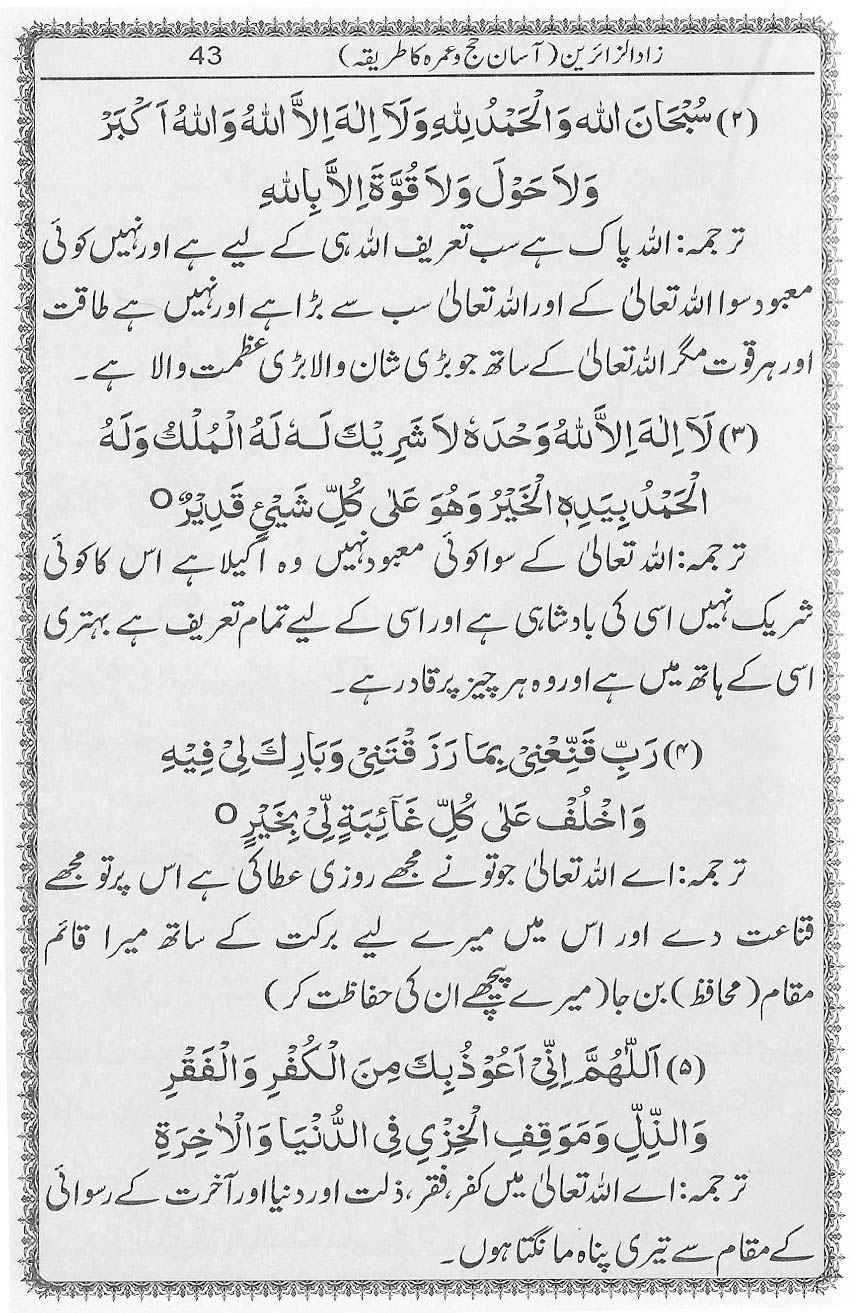 زاد الزائرین (آسان حج و عمرہ کا طریقہ) 43
(۲) سُبْحَانَ اللہ وَالْحَمْدُ لِلّٰہِ وَلَآ اِلٰہَ اِلاَّ اللہُ وَاللہُ اَکْبَرْ
وَلاَ حَوْلَ وَلاَ قُوَّۃَ اِلاَّ بِاللہِ
ترجمہ: اللہ پاک ہے سب تعریف اللہ ہی کے لیے ہے اور نہیں کوئی
معبود سوا اللہ تعالیٰ کے اور اللہ تعالیٰ سب سے بڑا ہے اور نہیں ہے طاقت
اور ہر قوت مگر اللہ تعالیٰ کے ساتھ جو بڑی شان والا بڑی عظمت والا ہے۔
(۳) لَآ اِلٰہَ اِلاَّ اللہُ وَحْدَہٗ لاَ شَرِیْکَ لَہٗ لَہُ الْمُلْکُ وَلَہُ
الْحَمْدُ بِیَدِہِ الْخَیْرُ وَھُوَ عَلٰی کُلِّ شَیْئٍ قَدِیْرٌ ○
ترجمہ: اللہ تعالیٰ کے سوا کوئی معبود نہیں وہ اکیلا ہے اس کا کوئی
شریک نہیں اسی کی بادشاہی ہے اور اسی کے لیے تمام تعریف ہے بہتری
اسی کے ہاتھ میں ہے اور وہ ہر چیز پر قادر ہے۔
(۴) رَبِّ قَنِّعْنِیْ بِمَا رَزَ قْتَنِیْ وَبَارِکَ لِیْ فِیْہِ
وَاخْلُفْ عَلٰی کُلِّ غَآئِبَۃٍ لِّیْ بِخَیْرٍ ○
ترجمہ: اے اللہ تعالیٰ جو تو نے مجھے روزی عطا کی ہے اس پر تو مجھے
قناعت دے اور اس میں میرے لیے برکت کے ساتھ میرا قائم
مقام (محافظ) بن جا (میرے پیچھے ان کی حفاظت کر)
(۵) اَللّٰھُمَّ اِنِّیْ اَعُوْذُ بِکَ مِنَ الْکُفْرِ وَالْفَقْرِ
وَالذِّلِّ وَمَوَقِفِ الْخِزْیِ فِی الدُّنْیَا وَالْاٰخِرَۃِ
ترجمہ: اے اللہ تعالیٰ میں کفر، فقر، ذلت اور دنیا اور آخرت کے رسوائی
کے مقام سے تیری پناہ مانگتا ہوں۔